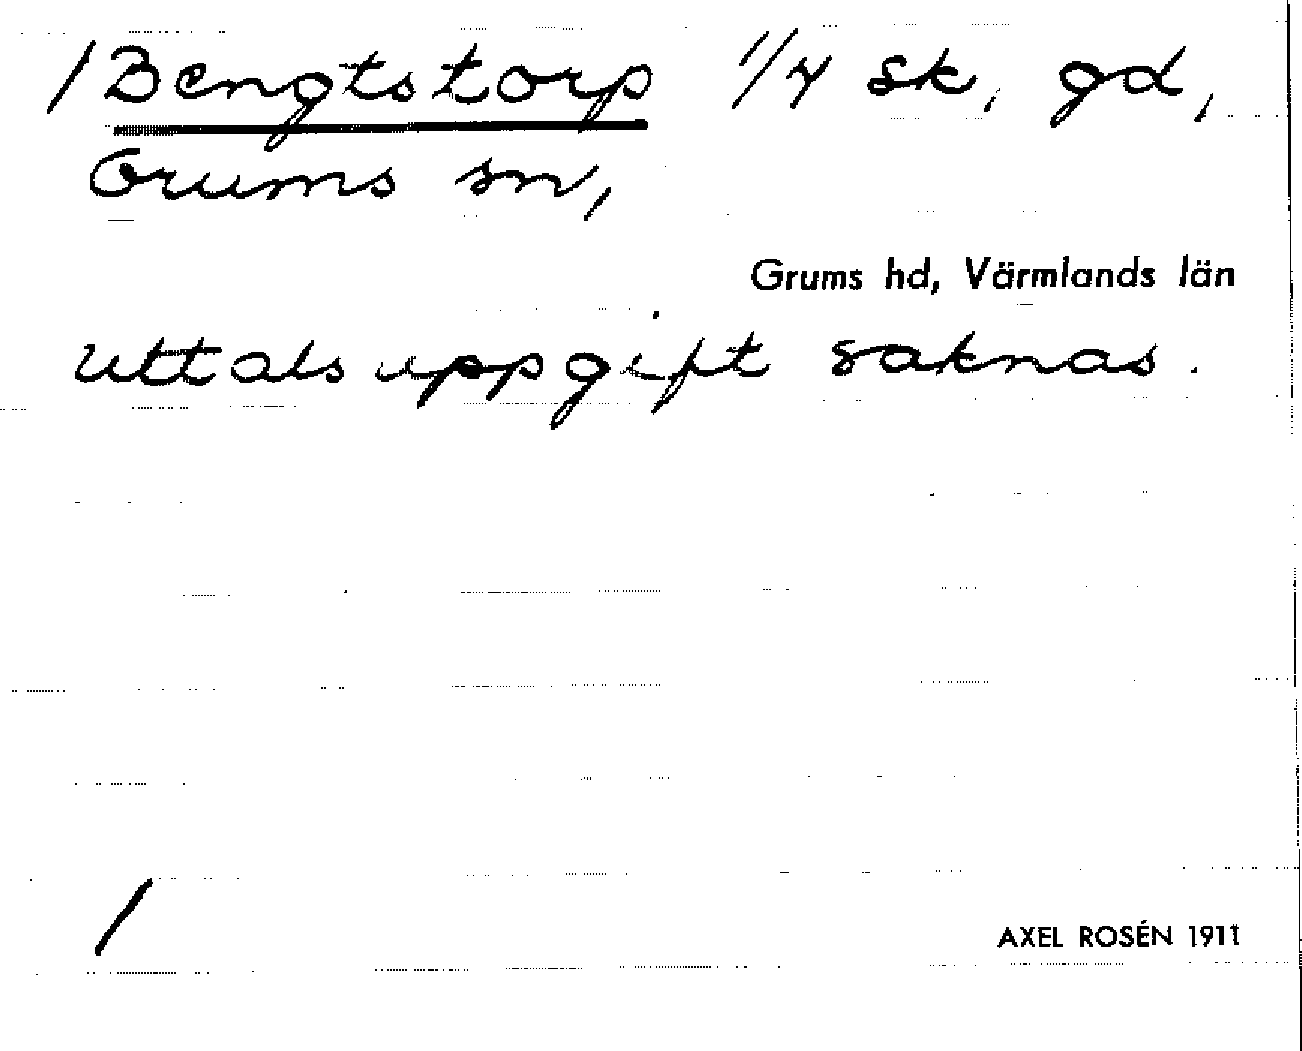 /Bengtstorp 1/4 sk, gd,
Grums sn,
Grums hd, Värmlands län
Uttalsuppgift saknas.
/
AXEL ROSÉN 1911